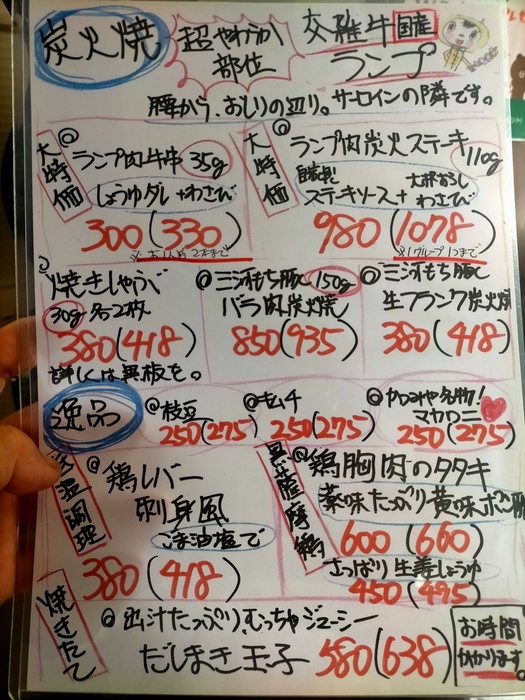 炭火焼
超やわらか
部位
交雑牛国産
ランプ
腰から、おしりの辺り。サーロインの隣です。
大特価
◎ランプ肉牛串 35g
しょうゆダレ+わさび
300(330)
※お1人前 2本まで
大特価
◎ランプ肉炭火ステーキ 110g
自家製
ステーキソース+
大根おろし
わさび
980(1078)
※1グループ1つまで
焼きしゃぶ
30g 各2枚
380(418)
詳しくは異板を。
◎三河もち豚 150g
バラ肉炭火焼
850(935)
◎三河もち豚
生フランク炭火焼
380(418)
逸品
◎枝豆
250(275)
◎キムチ
250(275)
名物!
マカロニ
250(275)
低温調理
◎鶏レバー
刺身風
ごま油塩で
380(418)
黒薩摩鶏
◎鶏胸肉のタタキ
薬味たっぷり黄味ポン酢
600(660)
さっぱり生姜しょうゆ
450(495)
焼きたて
◎出汁たっぷり、むっちゃジューシー
だしまき玉子 580(638)
お時間
かかります